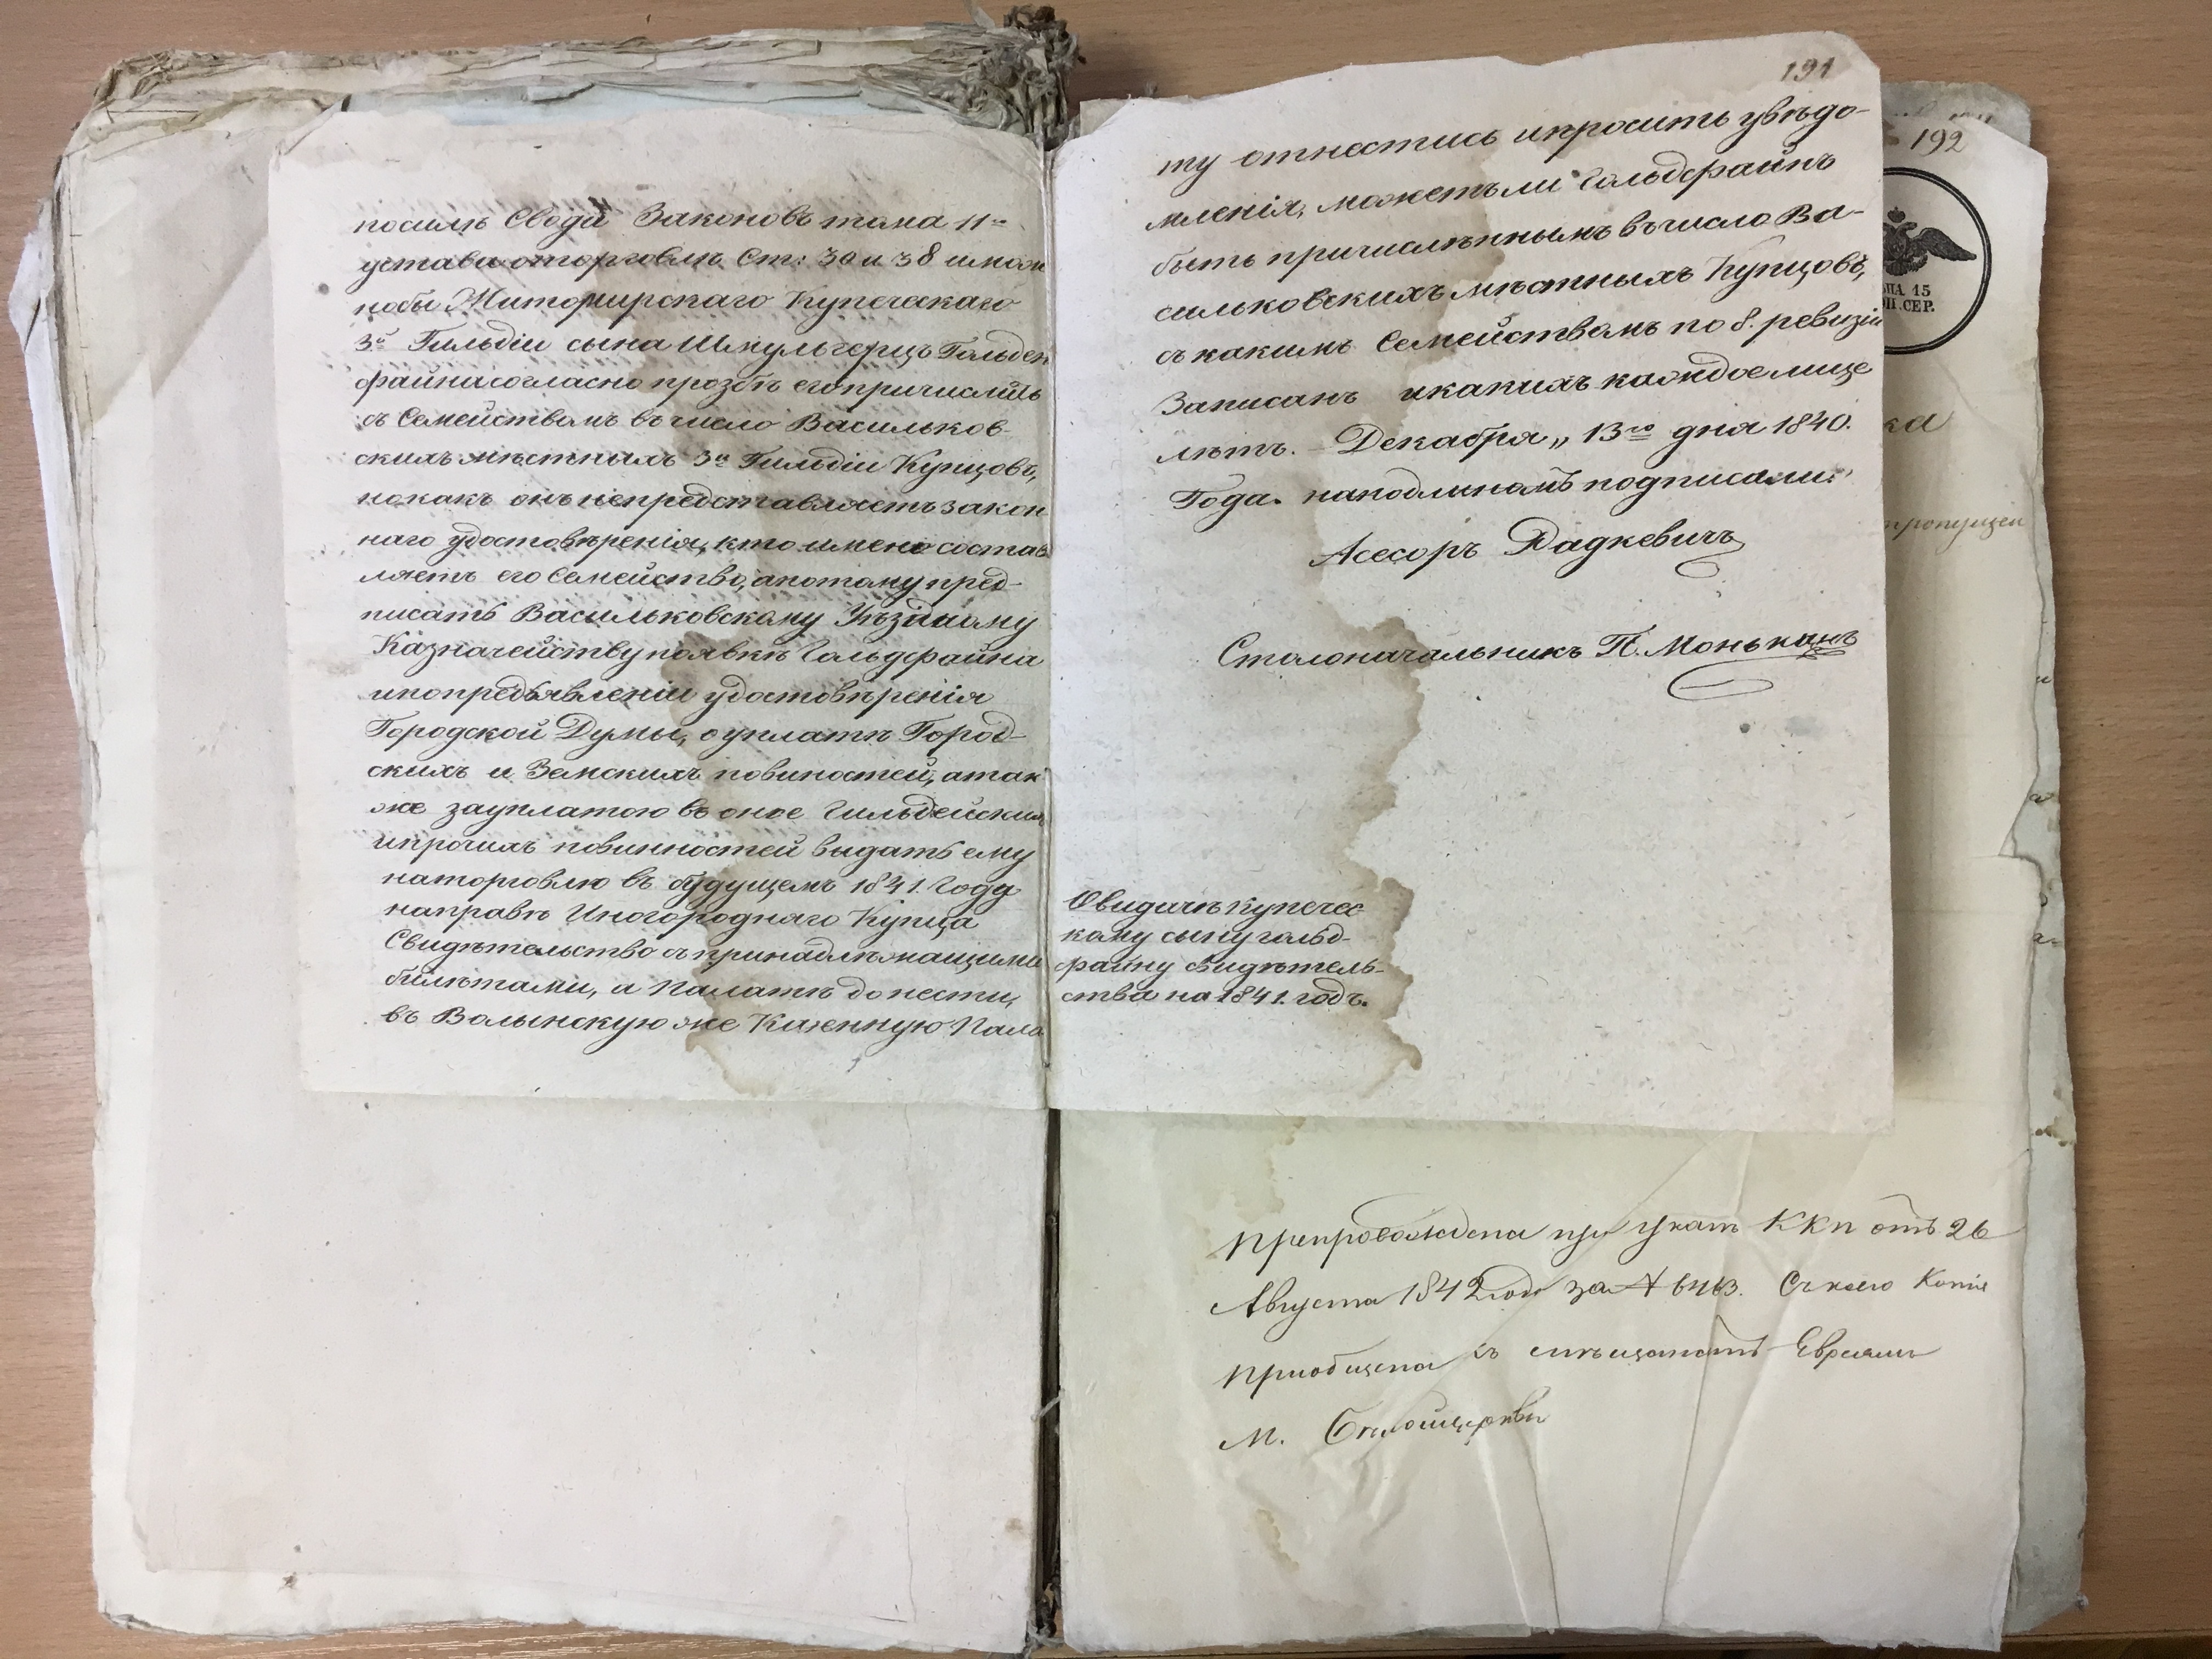 посилѣ Свода Законовъ тома 11го
устава оторговлѣ Ст: 30 и 38 и
нобы Житомирскаго Купеческаго
3й Гильдіи сына Шмуль герцъ Гольден
файна согласно прозбѣ его причислить
съ Семействомъ въ число Васильков-
скихъ мѣстныхъ 3й Гильдіи Купцовъ,
но какъ онъ непредставляетъ закон
наго удостовѣренія, кто имено состав
ляетъ его Семейство, а потому пред-
писать Васильковскому Уѣздному
Казначейству появкѣ Гольдфайна
ипопредъявленіи удостовѣренія
Городской Думы, о уплатѣ Город-
скихъ и Земскихъ повиностей, атак
же зауплатою въ оное Гильдейскихъ
ипрочихъ повинностей выдать ему
наторговлю въ будущемъ 1841. Году
направѣ Иногороднаго Купца
Свидѣтельство съ принадлѣжащими
билѣтами, а Палатѣ донести,
въ Волынскую же Казенную Пала
191
ту отнестись ипросить увѣдо-
мленія, можетъ ли Гольдфайнъ
быть причислѣннымъ въ число Ва-
сильковскихъ мѣстныхъ Купцовъ,
съ какимъ Семействомъ по 8. ревизіи
Записанъ икакихъ каждое лице
лѣтъ. - Декабря „ 13го дня 1840.
Года. наподлиномъ подписали:
Асесоръ Радкевичъ
Столоначальникъ П. Монькацъ
Овидачѣ купечес
кому сыну гольд-
файну свидѣтель-
ства на 1841. годъ.
192
ПА 15
П. СЕР.
ка
пропущен
Препровождена при Указѣ ККП отъ 26
Августа 1842 года за № 6463. Съ коего Копія
приобщена къ мѣщанамъ Евреямъ
м. Бѣлойцеркви